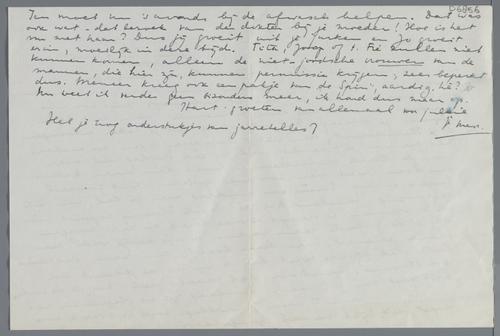 D6866
Jan moet nu 's avonds bij de afwasch helpen. Dat was
ook wat - dat bezoek van den dokter bij je moeder! Hoe is het
nu met haar? Dus jij groeit uit je jurken en Jo groeit
erin, moeilijk in deze tijd. Joop of t. Fie zullen niet
kunnen komen, alleen de niet-joodsche vrouwen van de
mannen, die hier zijn, kunnen permissie krijgen, zeer beperkt
dus. Meneer kreeg ook een pakje van de Spin, aardig, hè?
Nu weet ik verder geen bizonders meer, ik houd dus maar op.
Hart. groeten van allemaal voor jullie
Heb je nog onderstukjes van jarretelles?